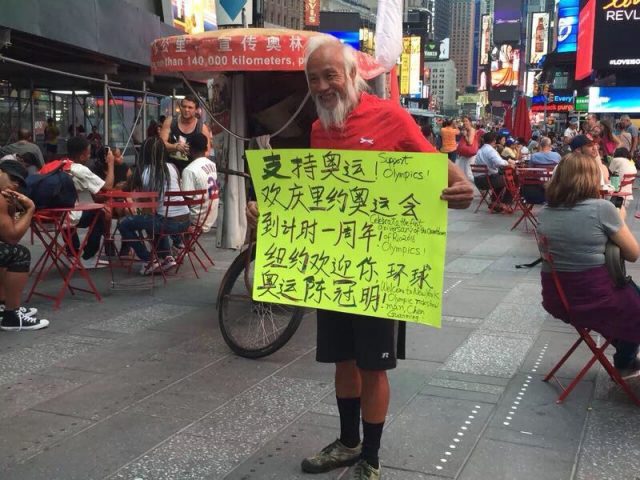 公里,宣传奥林
than 140,000 kilometers, p
支持奥运! Support Olympics!
欢庆里约奥运会
到计时一周年!
Celebrate the first
Anniversary of the Countdown
of Rio2016
Olympics!
纽约欢迎你环球
奥运陈冠明!
Welcome to New York
Olympic
man Chen
Guanming!
REVL